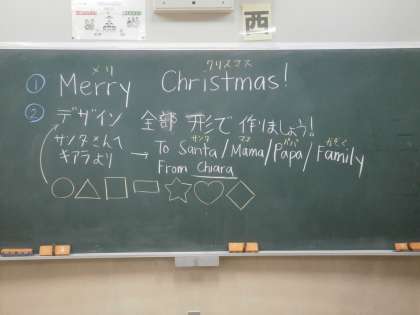 メリ クリスマス
① Merry Christmas!
② デザイン 全部 形で 作りましょう!
サンタさんへ
キアラより
サンタ ママ パパ かぞく
→ To Santa/Mama/Papa/Family
From Chiara
西